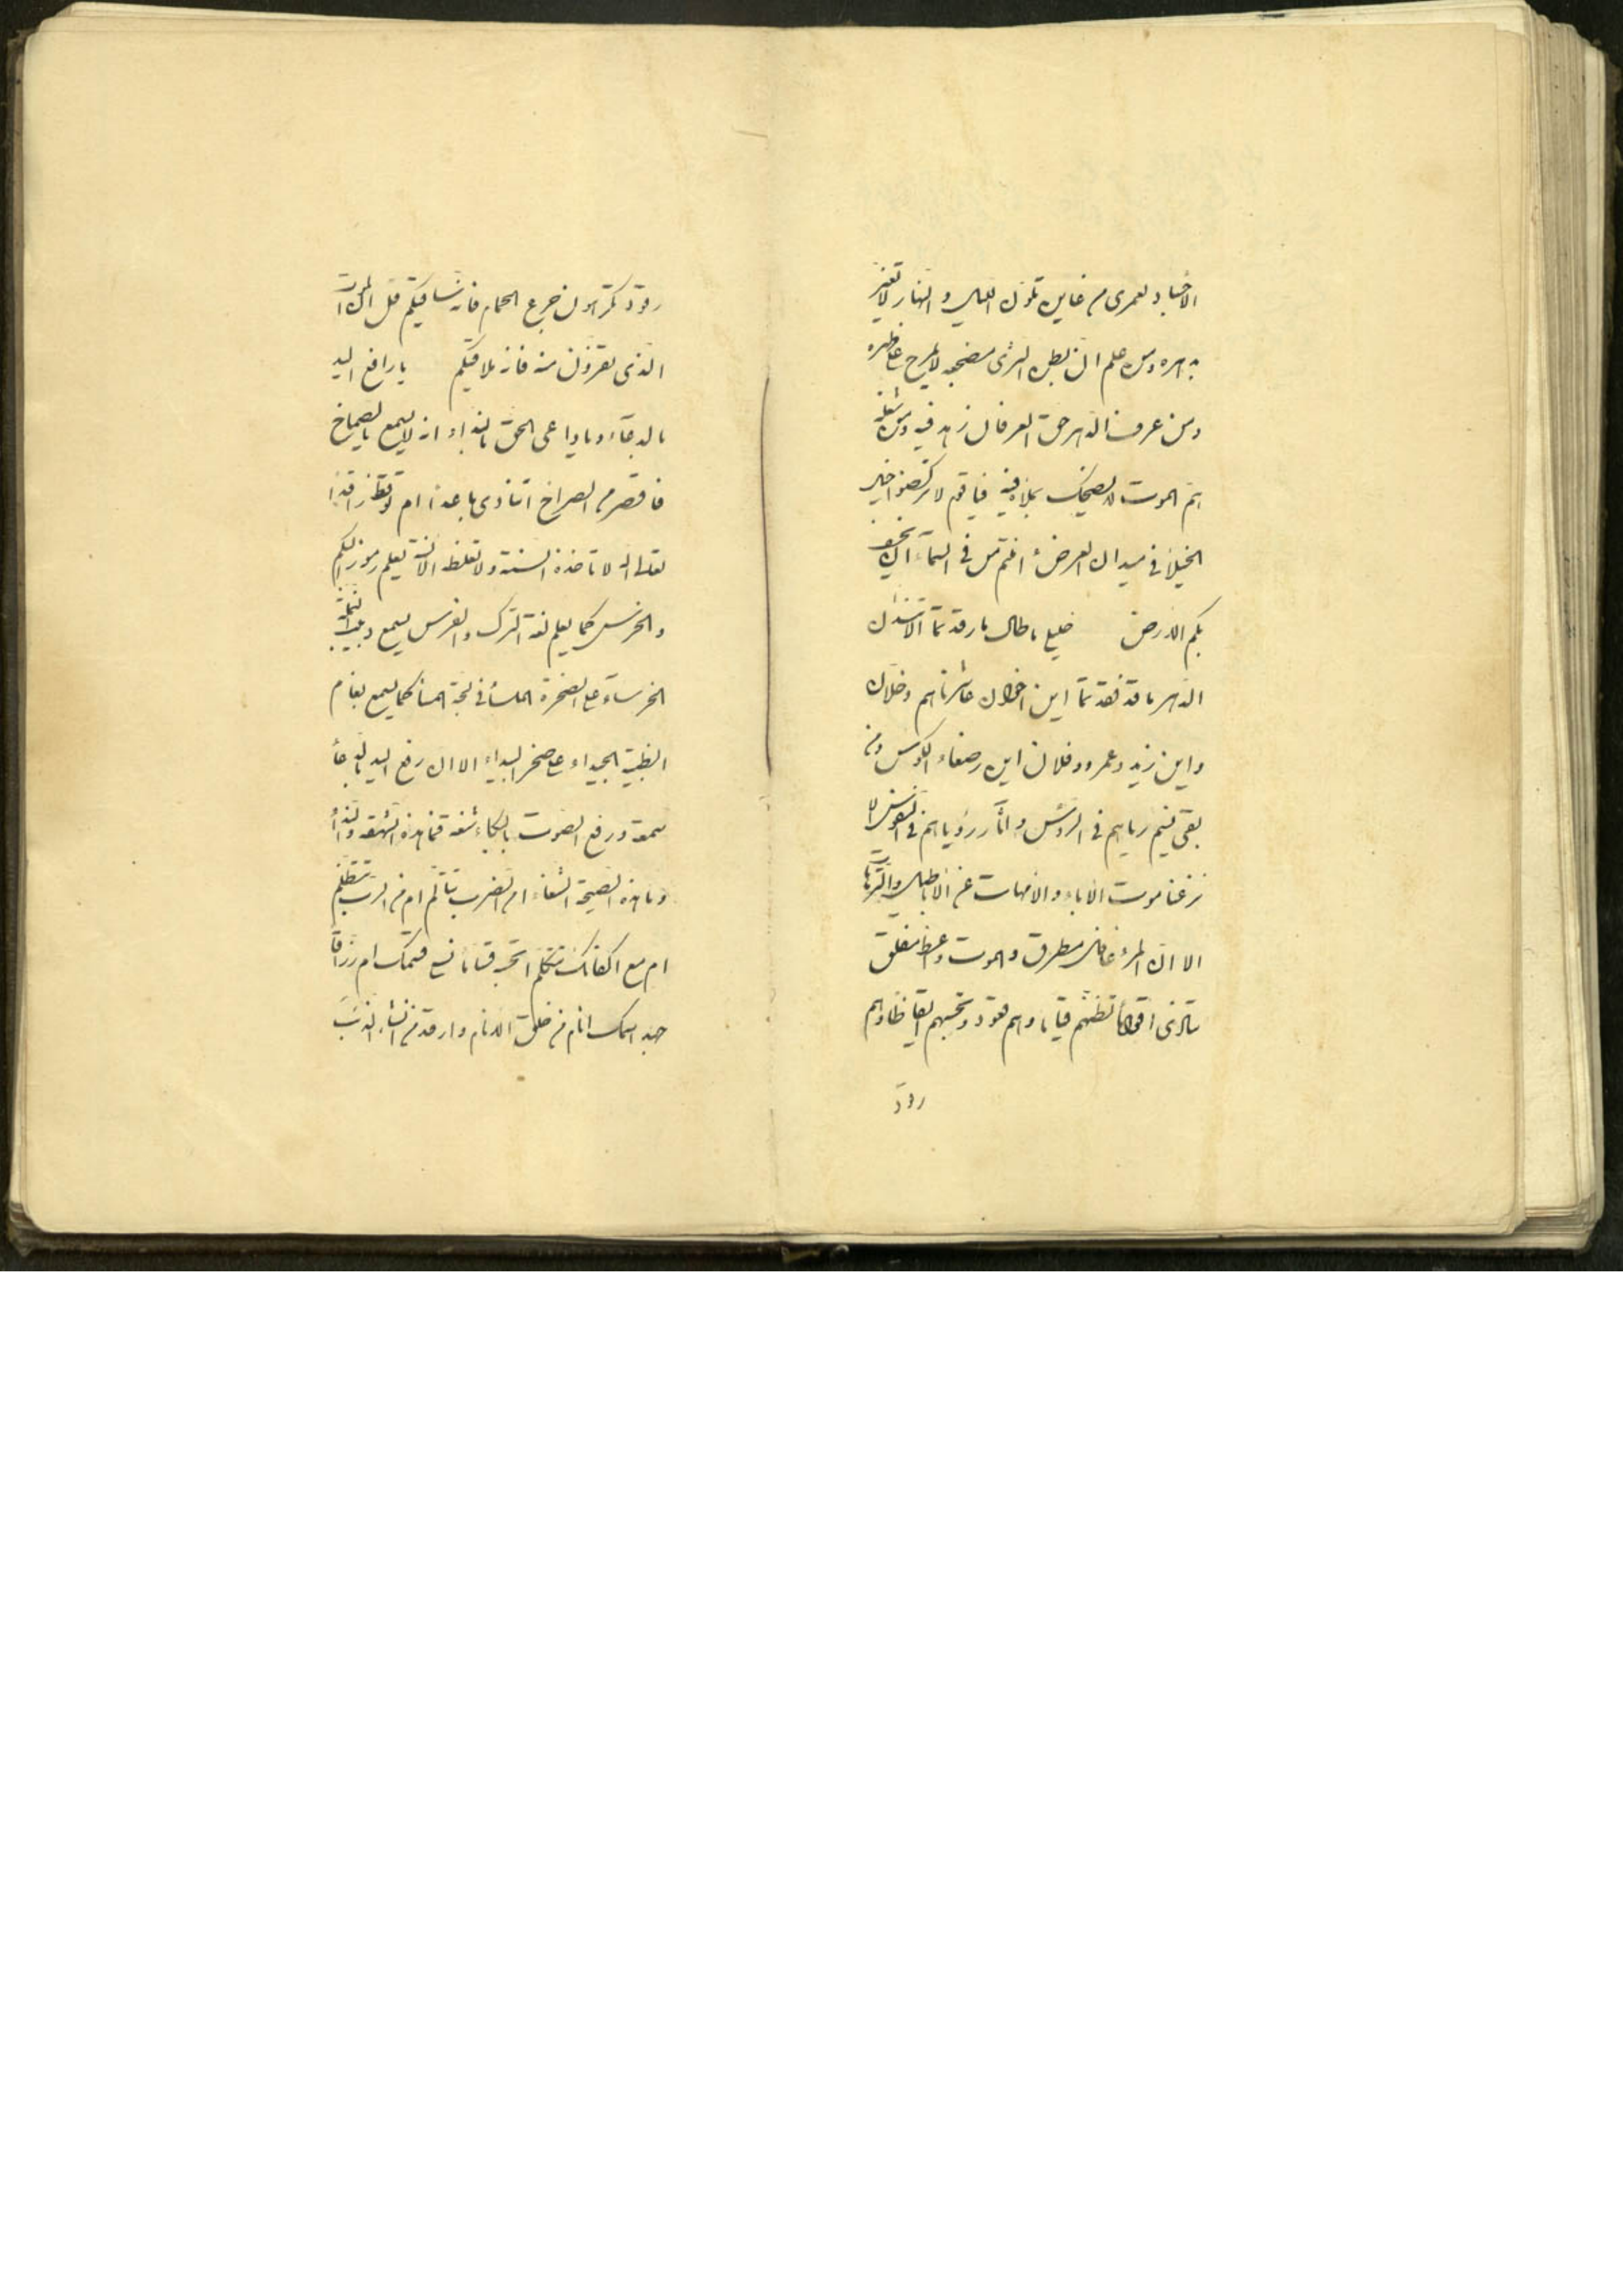 الأجساد لعمري من عاين تلون الليل والنهار لا تغير
بدهره ومن علم ان بطن الثرى مضجعه لا يمرح على ظهره
ومن عرف الدهر حق العرفان زهد فيه ومن شغله
هم الموت لا يضحك بملإ فيه فيا قوم لا تركضوا خيل
الخيلاء في ميدان العرض أأمنتم من في السماء ان يخسف
بكم الارض خليلي ما طال ما رقدتما لا تنشدان
الدهر ما قد فقدتما اين اخوان عاشرناهم وخلان
واين زيد وعمرو وفلان اين رضعاء الكؤوس ومن
بقى نسيم رياهم في الرؤس وآثار رؤياهم في النفوس الا
يزعنا موت الآباء والأمهات عن الأباطيل والترهات
الا ان المرء غافل مطرق والموت واعظ مفلق
سترى اقواما تظنهم قياما وهم قعود وتحسبهم ايقاظا وهم
رقود
رقود تكرهون جرع الحمام فانه ساقيكم قل ان الموت
الذي تفرون منه فانه ملاقيكم يا رافع اليد
بالدعاء ويا داعي الحق بالنداء انه لا يسمع بالصماخ
فاقصر من الصراخ اتنادى باعدا ام توقظ راقدا
تعالى الله لا تأخذه السنة ولا تغلطه الالسنة يعلم رموز البكم
والخرس كما يعلم لغة الترك والفرس يسمع دبيب النملة
الخرساء على الصخرة الملساء في لجة المساء كما يسمع بغام
الظبية الجيداء على صخر البيداء الا ان رفع اليد بالدعاء
سمعة ورفع الصوت بالبكاء شنعة فما هذه الشهقة والنداء
وما هذه الصيحة الشنعاء امن الضرب تتألم ام من الرب تتظلم
ام مع اكفائك تتكلم اتحسبه قساما نسي قسمك ام رزاقا
جهد اسمك انام من خلق الانام وارقد من انشأ الذئب